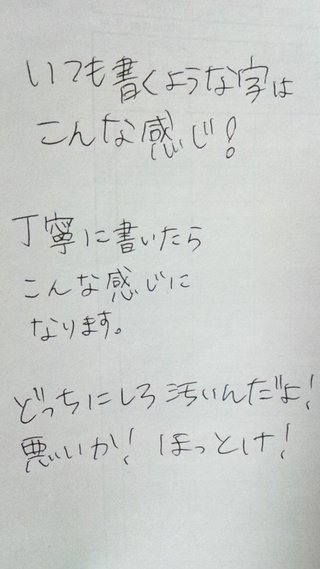 いつも書くような字は
こんな感じ!
丁寧に書いたら
こんな感じに
なります。
どっちにしろ汚いんだよ!
悪いか! ほっとけ!